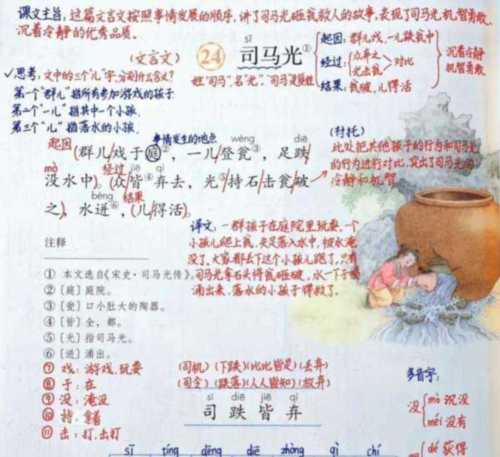 课文主旨:这篇文言文按照事情发展的顺序,讲了司马光砸瓮救人的故事,表现了司马光机智勇敢、
沉着冷静的优秀品质。
(文言文) 24 司马光①
sī
姓"司马",名"光"。"司马"是复姓
起因:群儿戏,一儿跌瓮中
经过:众弃之
光击瓮
对比
结果:瓮破,儿得活
沉着冷静
机智勇敢
✓思考:文中的三个"儿"字,分别什么意思?
第一个"群儿"指所有参加游戏的孩子
第二个"一儿"指其中一个小孩
第三个"儿"指落水的小孩
起因
事情发生的地点
wèng diē
(群儿/戏于庭②,一儿/登瓮③,足跌/
mò 经过 jiē qì
没水中)。(众/皆④弃去,光⑤/持石/击瓮/破
bèng 结果
之),水迸⑥,(儿/得活)。
(衬托)
此处把其他孩子的行为和司马光
的行为进行对比,突出了司马光的
冷静和机智
译文:一群孩子在庭院里玩耍,一个
注释
① 本文选自《宋史·司马光传》。
② 〔庭〕庭院。
③ 〔瓮〕口小肚大的陶器。
④ 〔皆〕全,都。
⑤ 〔光〕指司马光。
⑥ 〔迸〕涌出。
⑦ 戏:游戏,玩耍
⑧ 于:在
⑨ 没:淹没
⑩ 持:拿着
⑪ 击:打,击打
涌出来,落水的小孩子得救了。
(司机)(下跌)(比比皆是)(丢弃)
(司令)(跌落)(人人皆知)(放弃)
sī diē jiē qì
司 跌 皆 弃
多音字:
没 mò 沉没
méi 没有
dé 获得
sī tíng dēng diē zhòng qì chí